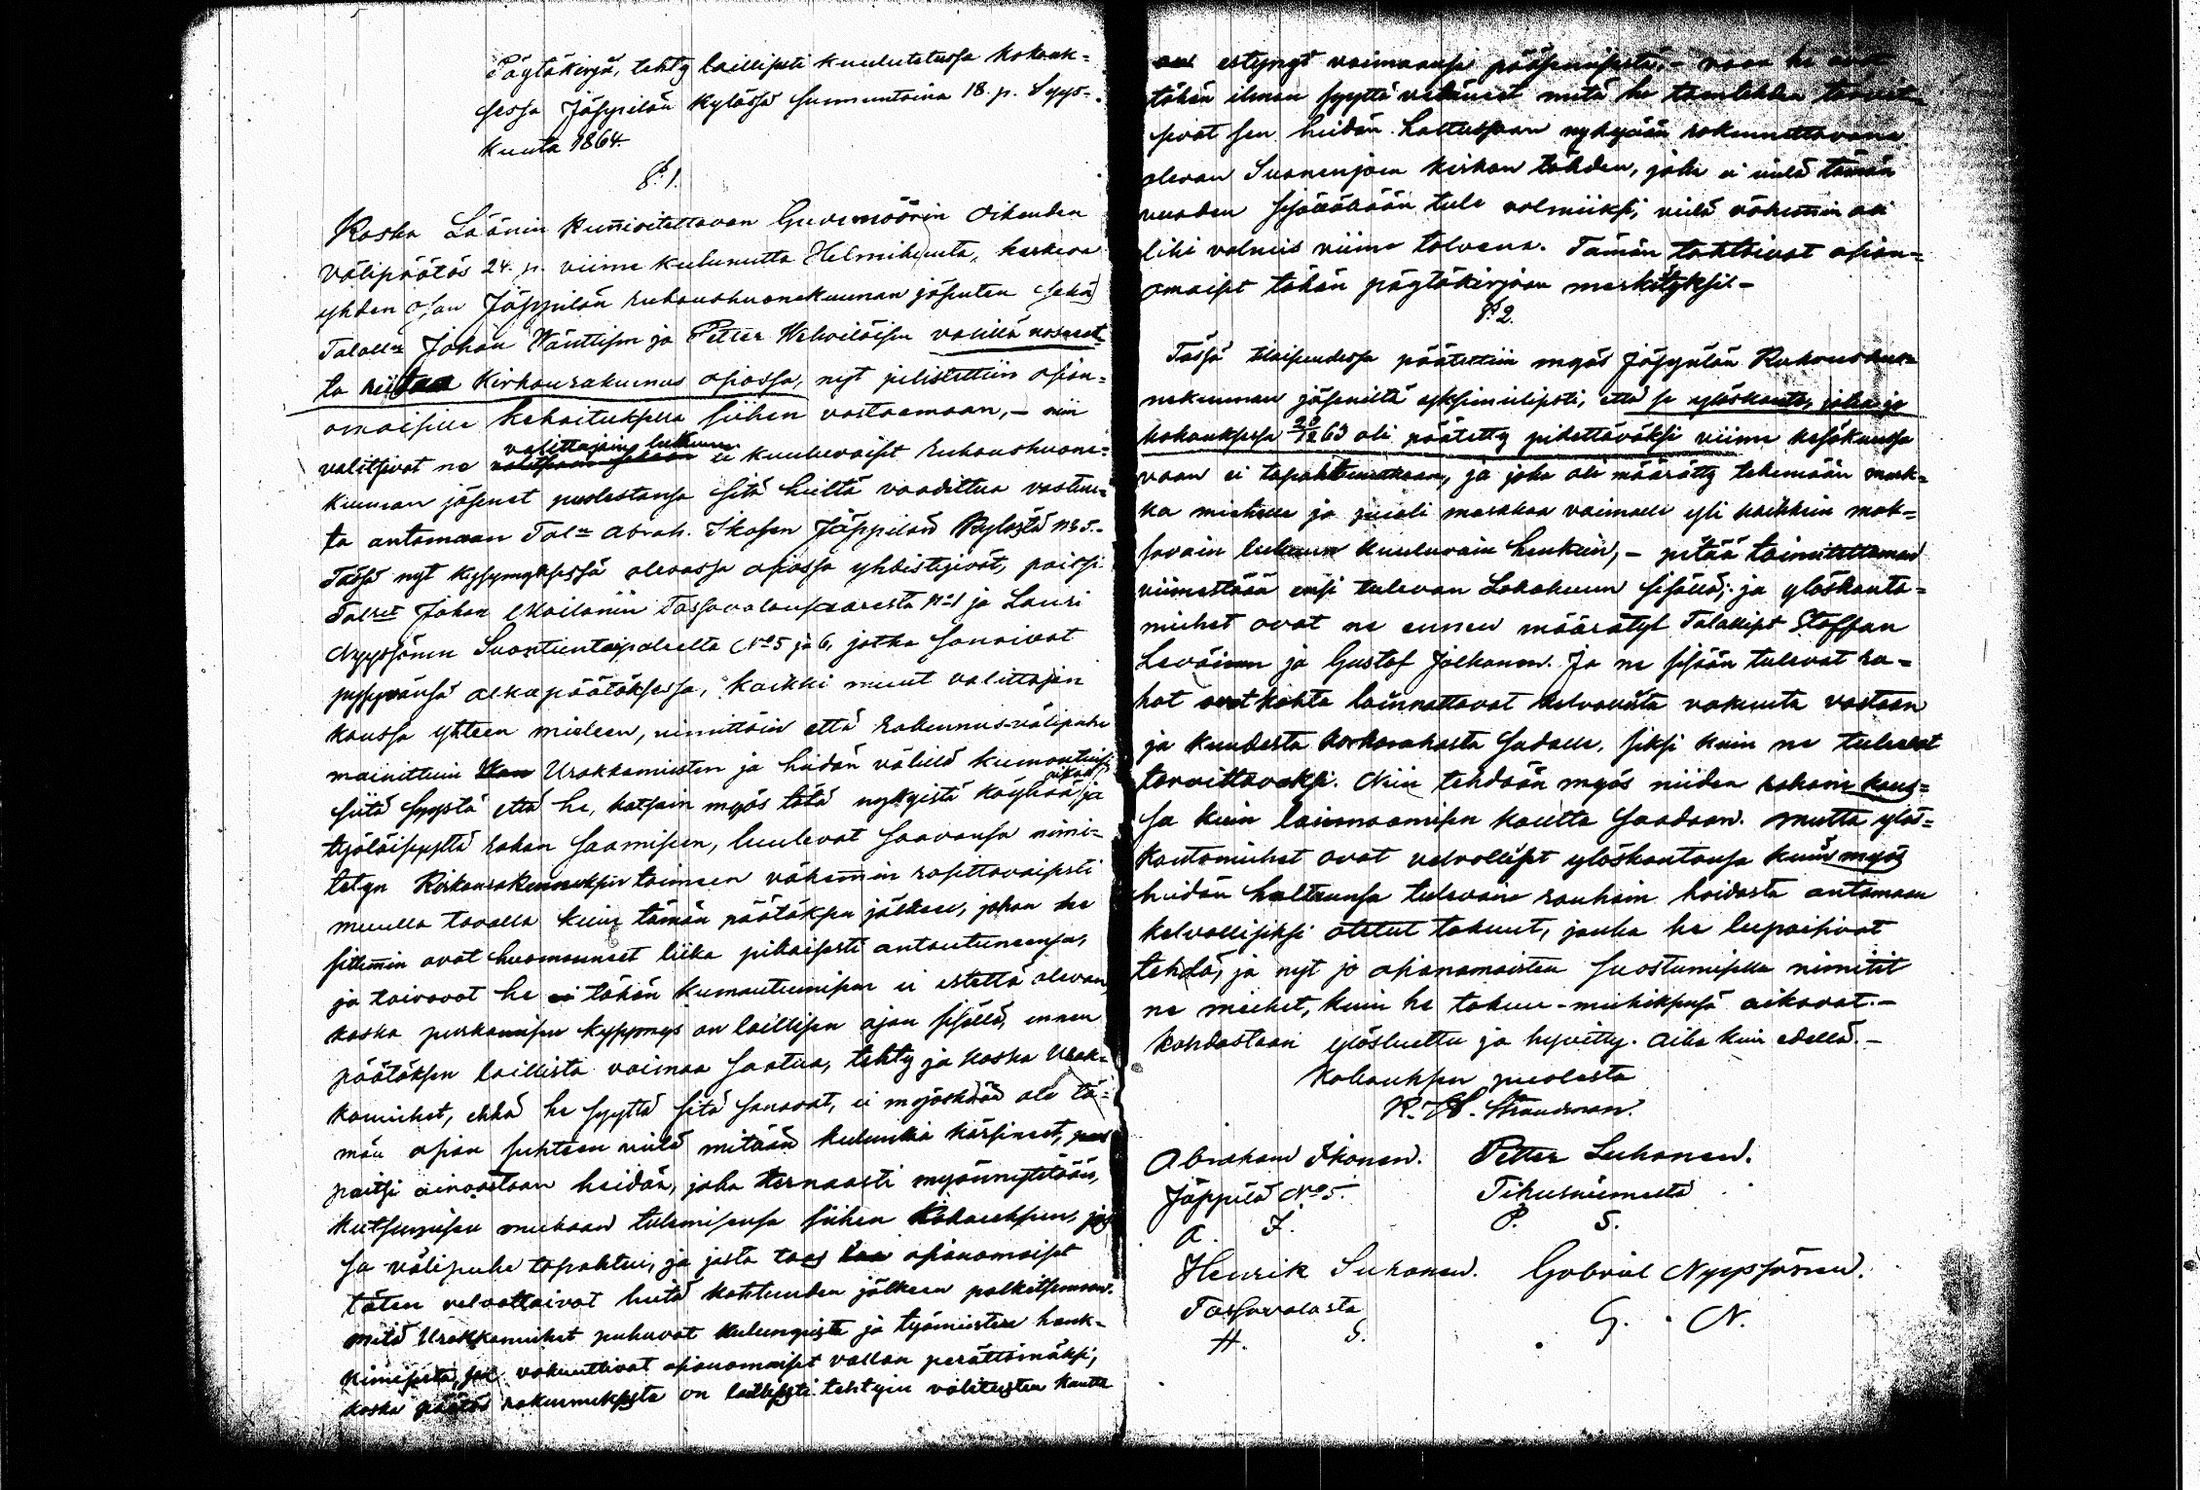 Pöytäkirja, tehty laillisesti kuulutetussa kokouk=
sessa Jäppilän kylässä sunnuntaina 18. p. Syys=
kuuta 1864.
§ 1.
Koska Läänin kunnioitettavan Guvernöörin Oikeuden
välipäätös 24. p. viime kulunutta Helmikuuta, koskeva
yhden osan Jäppilän rukoushuonekunnan jäsenten sekä
Talollen Johan Wänttisen ja Petter Wehviläisen välillä nosnut=
ta riitaa Kirkonrakennus asiassa, nyt julistettiin asian=
omaisille kehoituksella siihen vastaamaan, – niin
valitsivat ne valittajain lukuun ei kuuluvaiset rukoushuone=
kunnan jäsenet puolestansa sitä heiltä vaadittua vastaus=
ta antamaan Tal:n Abrah. Ikosen Jäppilän kylästä N:o 5.
Tässä nyt kysymyksessä olevassa asiassa yhdistyivät, paitsi
Tal:set Johan Mailanin Tossavalansaaresta N:o 1 ja Lauri
Nyyssönen Suontientaipaleelta N:o 5 ja 6, jotka sanoivat
pysyvänsä alkupäätöksessä, kaikki muut valittajain
kanssa yhteen mieleen, nimittäin että rakennus-välipuhe
mainittuin Urakkamiesten ja heidän välillä kumoutuisi
siitä syystä että he, katsoin myös tätä nykyistä köyhää aikaa ja
työläisyyttä rahan saamiseen, luulevat saavansa nimi=
tetyn Kirkonrakennuksen toimeen vähemmin rasittavaisesti
muulla tavalla kuin tämän päätöksen jälkeen, johon he
sittemmin ovat huomanneet liika pikaisesti antautuneensa,
ja toivovat he tähän kumoutumiseen ei estettä olevan,
koska purkamisen kysymys on laillisen ajan sisällä, ennen
päätöksen laillista voimaa saatua, tehty ja koska Urak=
kamiehet, ehkä he syyttä sitä sanovat, ei myöskään ole tä=
män asian suhteen vielä mitään kulunkia kärsineet,
paitsi ainoastaan heidän, joka kernaasti myönnytetään,
kutsumisen mukaan tulemisensa siihen Kokoukseen, jos=
sa välipuhe tapahtui, ja josta taas asianomaiset
täten velvoittaivat heitä kohtuuden jälkeen palkitsemaan.
Mitä Urakkamiehet puhuvat kulungista ja työmiesten hank=
kimisesta, sen vakuuttivat asianomaiset vallan perättömäksi,
koska päätös rakennuksesta on laillisesti tehtyin valitusten kautta
on estynyt voimaansa pääsemisestä, – vaan he ovat
tähän ilman syyttä vetäneet mitä he
sivat sen heidän haltussaan nykyään rakennettavana
olevan Suonenjoen kirkon tähden, joka ei vielä tämän
vuoden sisään tule valmiiksi, vielä vähemmin oli
liki valmis viime talvena. Tämän tahtoivat asian=
omaiset tähän pöytäkirjaan merkityksi. –
§ 2.
Tässä tilaisuudessa päätettiin myös Jäppilän Rukoushuo=
nekunnan jäseniltä yksimielisesti, että se ylöskanto, joka jo
kokouksessa 20/12 63 oli päätetty pidettäväksi viime kesäkuussa
vaan ei tapahtunutkaan, ja joka oli määrätty tekemään mark=
ka miehelle ja puoli markkaa vaimolle yli kaikkein mak=
savain lukuun kuuluvain henkein, – pitää toimitettaman
viimeistään ensi tulevan Lokakuun sisällä; ja ylöskanto=
miehet ovat ne ennen määrätyt Talolliset Staffan
Leväinen ja Gustaf Jalkanen. Ja ne sisään tulevat ra=
hat ovat kohta lainattavat kelvollista vakuuta vastaan
ja kuudesta korkorahasta sadalle, siksi kuin ne tulevat
tarvittavaksi. Niin tehdään myös niiden rahain kans=
sa kuin lainaamisen kautta saadaan. Mutta ylös=
kantomiehet ovat velvolliset ylöskantonsa kuin myös
heidän haltuunsa tulevain rauhain hoidosta antamaan
kelvollisiksi otetut takuut, jonka he lupaisivat
tehdä, ja nyt jo asianomaisten suostumisella nimitit
ne miehet, kuin he takuu-miehiksensä aikovat. –
Kohdastaan ylösluettu ja hyvitty. Aika kuin edellä. –
Kokouksen puolesta
K. H. Strandman.
Abraham Ikonen. Petter Suhonen.
Jäppilä N:o 5. Tihusniemestä
A. I. P. S.
Henrik Suhonen. Gabriel Nyyssönen.
Tossavalasta G. N.
H. S.